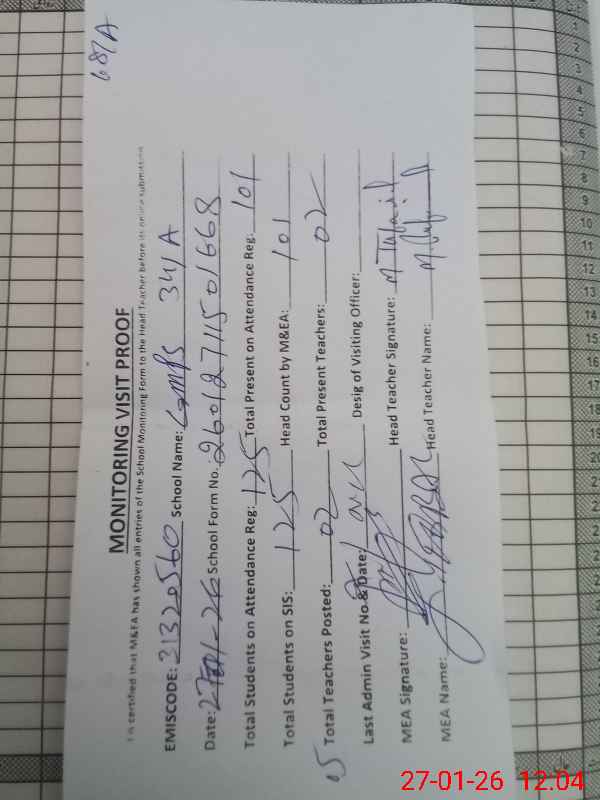 68/A
MONITORING VISIT PROOF
It is certified that M&EA has shown all entries of the School Monitoring Form to the Head Teacher before its online submission
EMISCODE: 31320560 School Name: GMPS 341/A
Date: 27-01-26 School Form No.: 26012711501668
Total Students on Attendance Reg: 125 Total Present on Attendance Reg: 101
Total Students on SIS: 125 Head Count by M&EA: 101
05 Total Teachers Posted: 02 Total Present Teachers: 02
Last Admin Visit No.& Date: Desig of Visiting Officer:
MEA Signature: Head Teacher Signature: M Tufail
MEA Name: Head Teacher Name: M Tufail
27-01-26 12:04